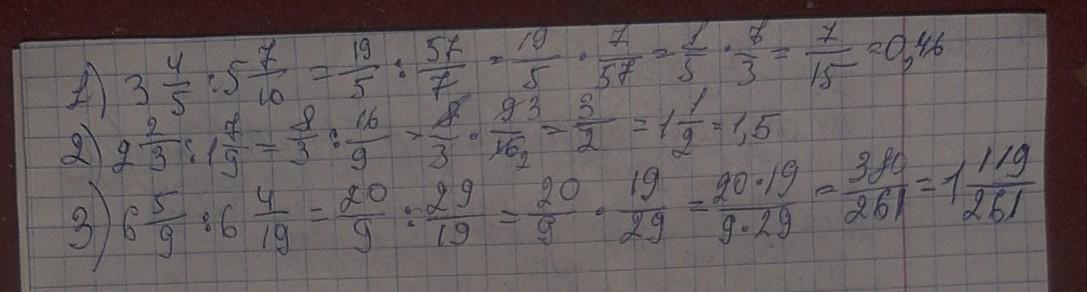 1) 3 4/5 : 5 7/10 = 19/5 : 57/7 = 19/5 · 7/57 = 1/5 · 7/3 = 7/15 = 0,46
2) 2 2/3 : 1 7/9 = 8/3 : 16/9 = 8/3 · 9 3/16 2 = 3/2 = 1 1/2 = 1,5
3) 6 5/9 : 6 4/19 = 20/9 : 29/19 = 20/9 · 19/29 = 20·19/9·29 = 380/261 = 1 119/261